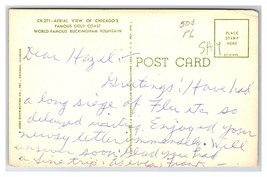 CK-271-AERIAL VIEW OF CHICAGO'S
FAMOUS GOLD COAST
WORLD-FAMOUS BUCKINGHAM FOUNTAIN
PLACE
STAMP
HERE
POST CARD
Dear Hazel:-
Greetings! Have had
a long siege of Flu etc so
delayed writing. Enjoyed your
newsy letter immensely. Will
answer soon. Glad you had
a fine trip.